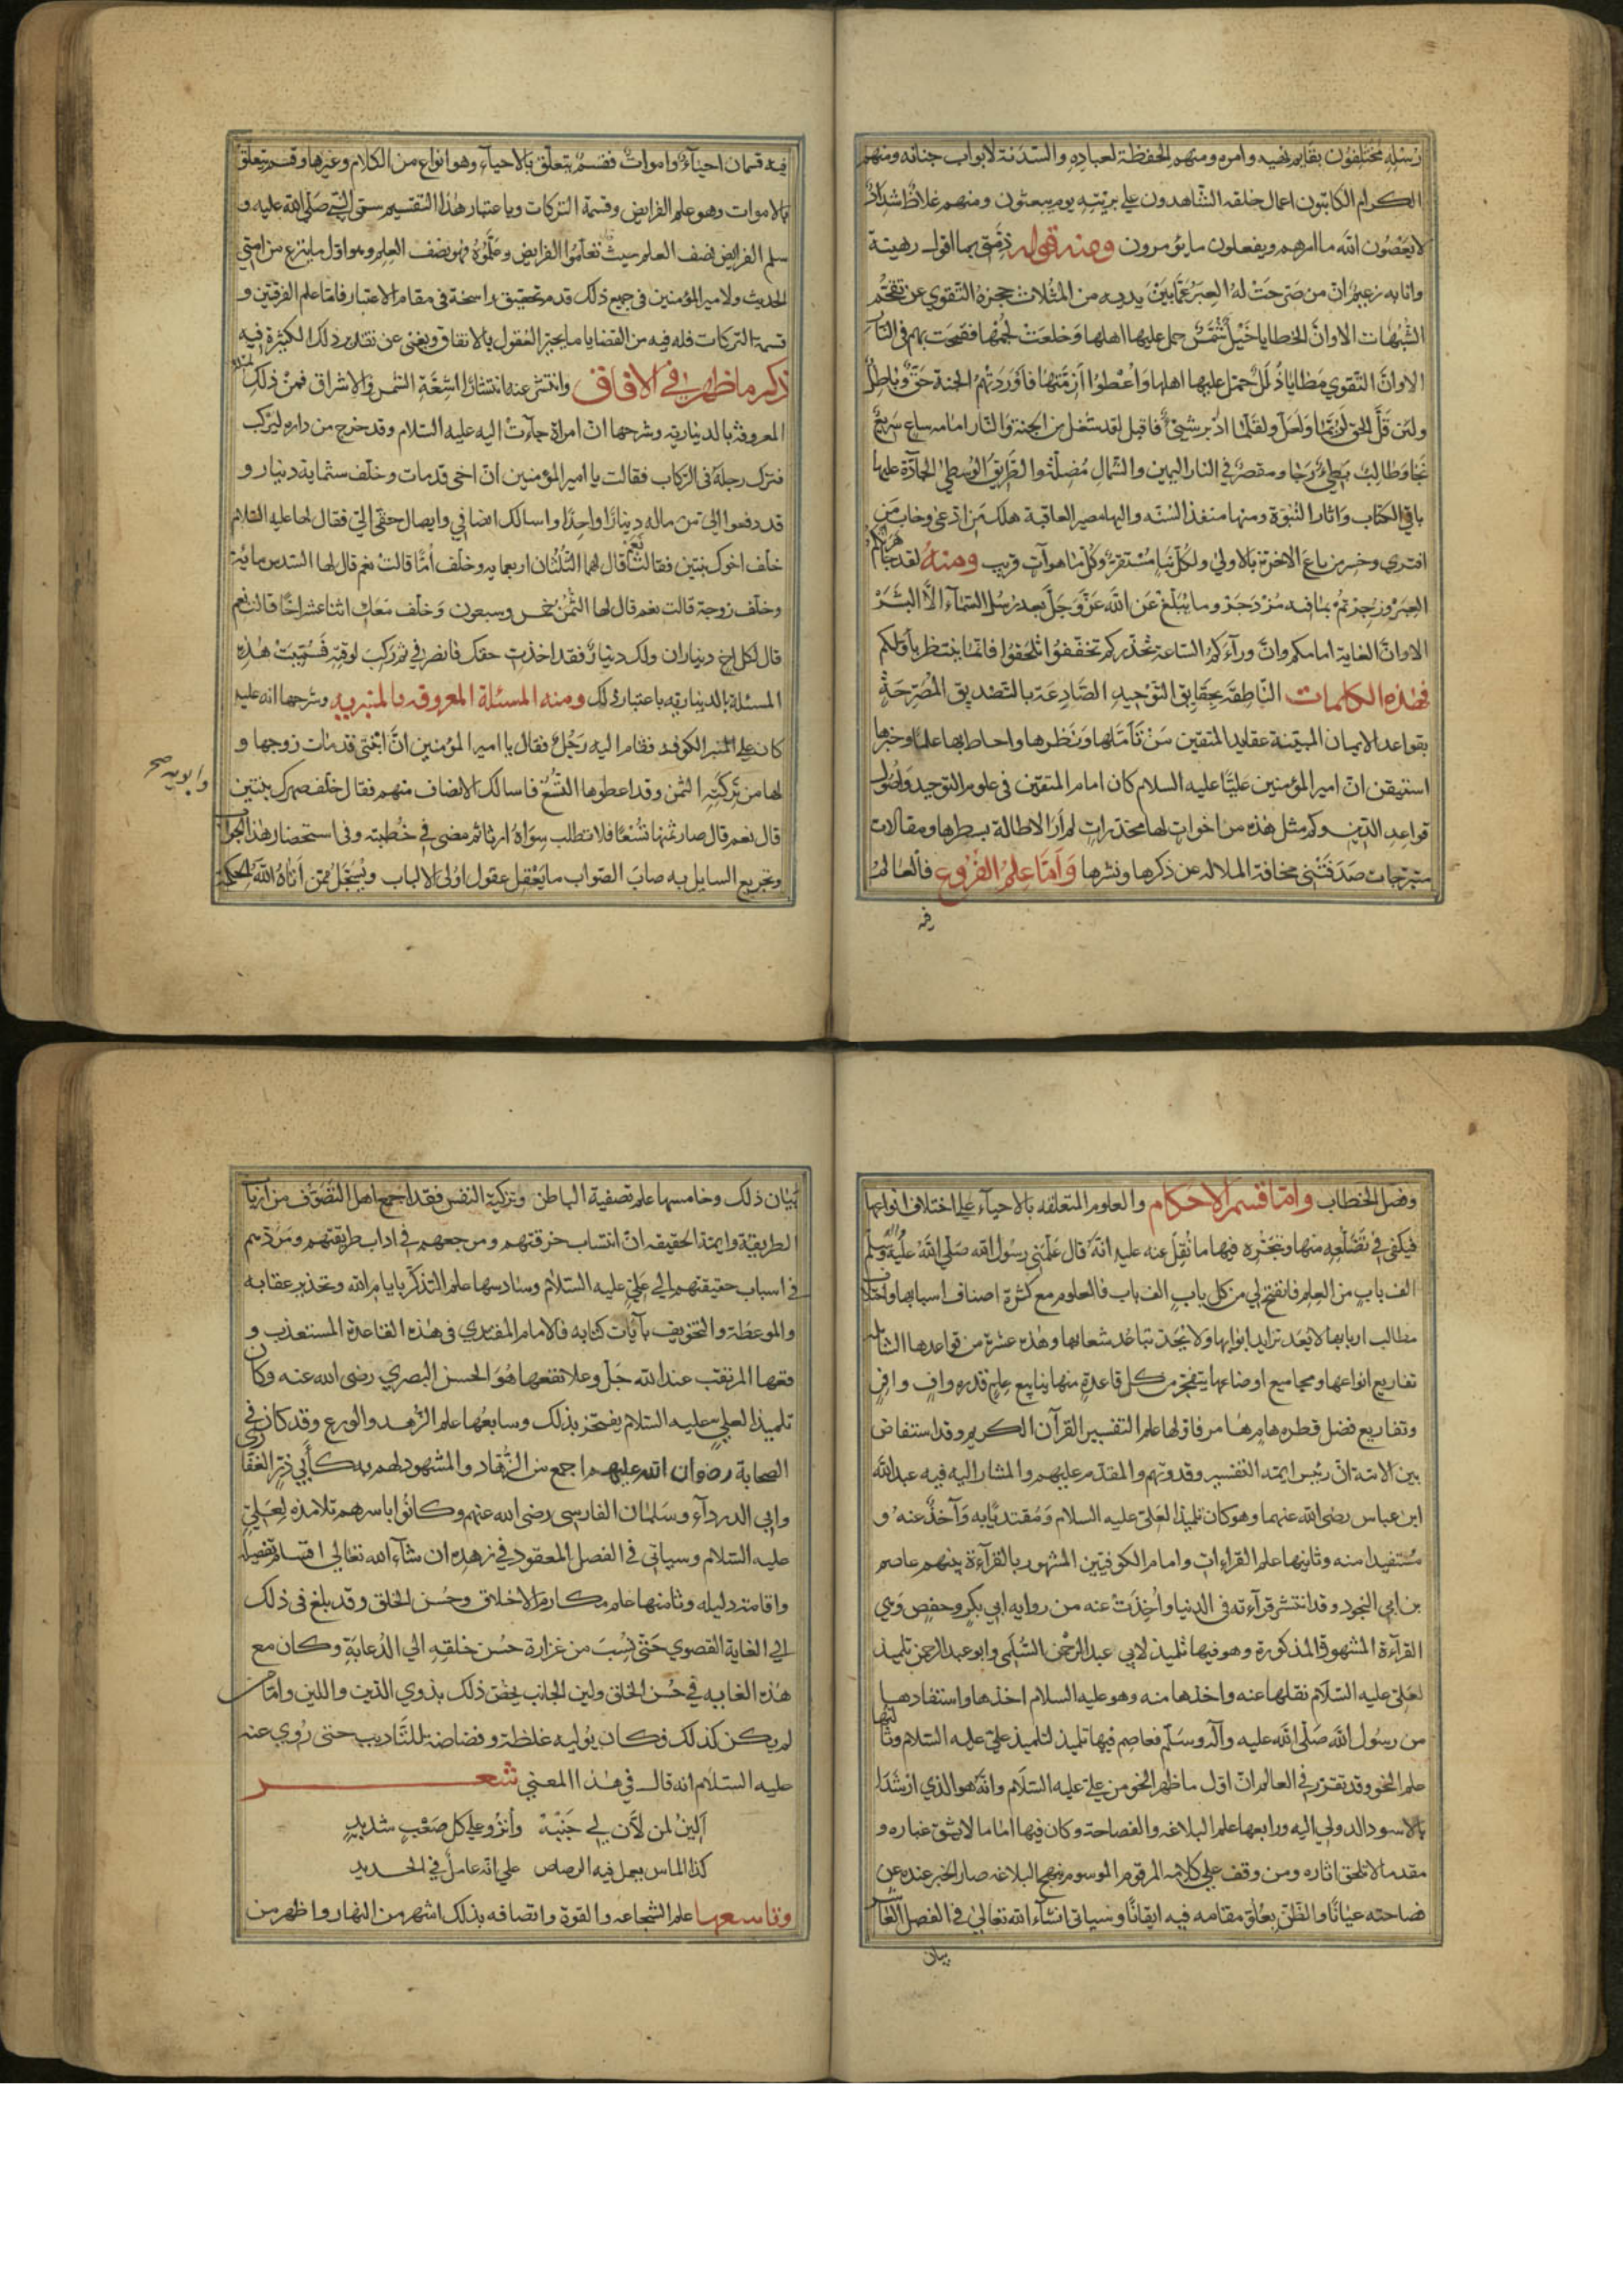 رسله مختلفون بقضايا نهيه وامره ومنهم الحفظة لعباده والسدنة لابواب جنانه ومنهم
الكرام الكاتبون اعمال خلقه الشاهدون علي بريته يوم يبعثون ومنهم غلاظ شداد
لا يعصون الله ما امرهم ويفعلون ما يؤمرون ومنه قوله ذمتي بما اقول رهينة
وانا به زعيم ان من صرحت له العبر عما بين يديه من المثلات حجزه التقوي عن تقحم
الشبهات الا وان الخطايا خيل شمس حمل عليها اهلها وخلعت لجمها فتقحمت بهم في النار
الا وان التقوي مطايا ذلل حمل عليها اهلها واعطوا ازمتها فاوردتهم الجنة حق وباطل
ولئن قل الحق لربما ولعل ولقلما ادبر شيئ فاقبل لقد شغل من الجنة والنار امامه ساع سريع
نجا وطالب بطيء رجا ومقصر في النار اليمين والشمال مضلة والطريق الوسطي الجادة عليها
باقي الكتاب واثار النبوة ومنها منفذ السنه واليها مصير العاقبة هلك من ادعى وخاب من
افتري وخسر من باع الاخرة بالاولي ولكل نبا مستقر وكل ما هو آت قريب ومنه لقد جاهرتكم
العبر وزجرتم بما فيه مزدجر وما يبلغ عن الله عز وجل بعد رسل السماء الا البشر
الا وان الغاية امامكم وان وراءكم الساعة تحذركم تخففوا تلحقوا فانما ينتظر باولكم
فهذه الكلمات الناطقة بحقايق التوحيد الصادعة بالتصديق المصرحة
بقواعد الايمان المبينة عقايد المتقين من تاملها ونظرها واحاط بها علما وخبرها
استيقن ان امير المؤمنين عليا عليه السلام كان امام المتقين في علوم التوحيد واصول
قواعد الدين وكم مثل هذه من اخوات لها مخدرات لم ار الاطالة بسطرها ومقالات
متبرجات صدفتني مخافة الملاله عن ذكرها ونشرها واما علم الفروع فالعالم
فيه قسمان احياء واموات فقسم يتعلق بالاحياء وهو انواع من الكلام وغيرها وقسم يتعلق
بالاموات وهو علم الفرايض وقسمة التركات وباعتبار هذا التقسيم سمى النبي صلى الله عليه و
سلم الفرايض نصف العلم حيث قال تعلموا الفرايض وعلموه فهو نصف العلم وهو اول ما ينزع من امتي
الحديث ولامير المؤمنين في جميع ذلك قدم تحقيق راسخة في مقام الاعتبار فاما علم الفرقتين و
قسمة التركات فله فيه من القضايا ما يحير العقول بالاتفاق ويغني عن تقدير ذلك الكثيرة فيه
ذكر ما ظهر في الافاق وانتشر عنه انتشار اشعة الشمس والاشراق فمن ذلك المسئلة
المعروفة بالدينارية وشرحها ان امراة جاءت اليه عليه السلام وقد خرج من داره ليركب
فترك رجله في الركاب فقالت يا امير المؤمنين ان اخى قد مات وخلف ستماية دينار و
قد دفعوا الي من ماله دينارا واحدا واسالك انصافي وايصال حقي الي فقال لها عليه السلام
خلف اخوك بنتين فقالت نعم قال لهما الثلثان اربعمايه وخلف اما قالت نعم قال لها السدس مائة
وخلف زوجة قالت نعم قال لها الثمن خمس وسبعون وخلف معك اثنا عشر اخا قالت نعم
قال لكل اخ ديناران ولك دينار فقد اخذت حقك فانصرفي ثم ركب لوقته فسميت هذه
المسئلة بالديناريه باعتبار ذلك ومنه المسئلة المعروفه بالمنبريه وشرحها انه عليه
كان علي المنبر الكوفه فقام اليه رجل فقال يا امير المؤمنين ان ابنتى قد مات زوجها و
لها من تركته الثمن وقد اعطوها التسع فاسالك الانصاف منهم فقال خلف صهرك بنتين
وابويه صح
قال نعم قال صار ثمنها تسعا فلا تطلب سواه ارثا ثم مضى في خطبته وفي استحضار هذا الجواب
وتجريع السايل به صاب الصواب ما يعقل عقول اولى الالباب ويسجل ممن اتاه الله الحكمة
وفصل الخطاب واما قسم الاحكام والعلوم المتعلقه بالاحياء علي اختلاف انواعها
فيكفي في تضلعه منها وتبحره فيها ما نقل عنه عليه انه قال علمني رسول الله صلي الله عليه وسلم
الف باب من العلم فانفتح لي من كل باب الف باب فالعلوم مع كثرة اصناف اسبابها واختلاف
مطالب اربابها لا يعد تزايد ابوابها ولا يحد تباعد شعابها وهذه عشرة من قواعدها الشاملة
تفاريع انواعها ومجاميع اوضاعها يتفجر من كل قاعدة منها ينابيع علم قدره واف وافر
وتفاريع فضل قطره هامر هام فاولها علم التفسير القرآن الكريم وقد استفاض
بين الامة ان رئيس ايمة التفسير وقدوتهم والمقدم عليهم والمشار اليه فيه عبد الله
ابن عباس رضي الله عنهما وهو كان تلميذا لعلي عليه السلام ومقتديا به وآخذ عنه و
مستفيدا منه وثانيها علم القراءات وامام الكوفيين المشهور بالقرآءة بينهم عاصم
بن ابي النجود وقد انتشر قرآءته في الدنيا واخذت عنه من روايه ابي بكر وحفص وهي
القرآءة المشهورة المذكورة وهو فيها تلميذ لابي عبد الرحمن السلمي وابو عبد الرحمن تلميذ
لعلي عليه السلام نقلها عنه واخذها منه وهو عليه السلام اخذها واستفادها
من رسول الله صلى الله عليه وآله وسلم فعاصم فيها تلميذ لتلميذ علي عليه السلام وثالثها
علم النحو وقد تقرر في العالم ان اول ما ظهر النحو من علي عليه السلام وانه هو الذي ارشد ابا
الاسود الدولي اليه ورابعها علم البلاغه والفصاحة وكان فيها اماما لا يشق غباره و
مقدما لا تلحق اثاره ومن وقف علي كلامه المرقوم الموسوم بنهج البلاغه صار الخبر عنده عن
فصاحته عيانا والظن بعلو مقامه فيه ايقانا وسياتي انشاء الله تعالي في الفصل العاشر
بيان
بيان ذلك وخامسها علم تصفية الباطن وتزكية النفس فقد اجمع اهل التصوف من ارباب
الطريقة وايمة الحقيقه ان انتساب خرقتهم ومرجعهم في اداب طريقتهم ومردهم
في اسباب حقيقتهم الي علي عليه السلام وسادسها علم التذكر بايام الله وتحذير عقابه
والموعظة والتخويف بآيات كتابه فالامام المقتدي في هذه القاعدة المستعذب و
قعها المرتقب عند الله جل وعلا نفعها هو الحسن البصري رضى الله عنه وكان
تلميذا لعلي عليه السلام يفتخر بذلك وسابعها علم الزهد والورع وقد كان في
الصحابة رضوان الله عليهم اجمع من الزهاد والمشهود لهم به كأبي ذر الغفاري
وابي الدرداء وسلمان الفارسي رضى الله عنهم وكانوا باسرهم تلامذة لعلي
عليه السلام وسياتي في الفصل المعقود في زهده ان شاء الله تعالي اقسام تفصيله
واقامة دليله وثامنها علم مكارم الاخلاق وحسن الخلق وقد بلغ في ذلك
الي الغاية القصوي حتى نسب من غزارة حسن خلقه الي الدعابة وكان مع
هذه الغايه في حسن الخلق ولين الجانب يخص ذلك بذوي الدين واللين واما من
لم يكن كذلك فكان يوليه غلظة وفضاضة للتاديب حتى روي عنه
عليه السلام انه قال في هذا المعني شعر
الين لمن لان لي جنبه وانزو علي كل صعب شديد
كذا الماس يعمل فيه الرصاص علي انه عامل في الحديد
وتاسعها علم الشجاعه والقوة واتصافه بذلك اشهر من النهار واظهر من